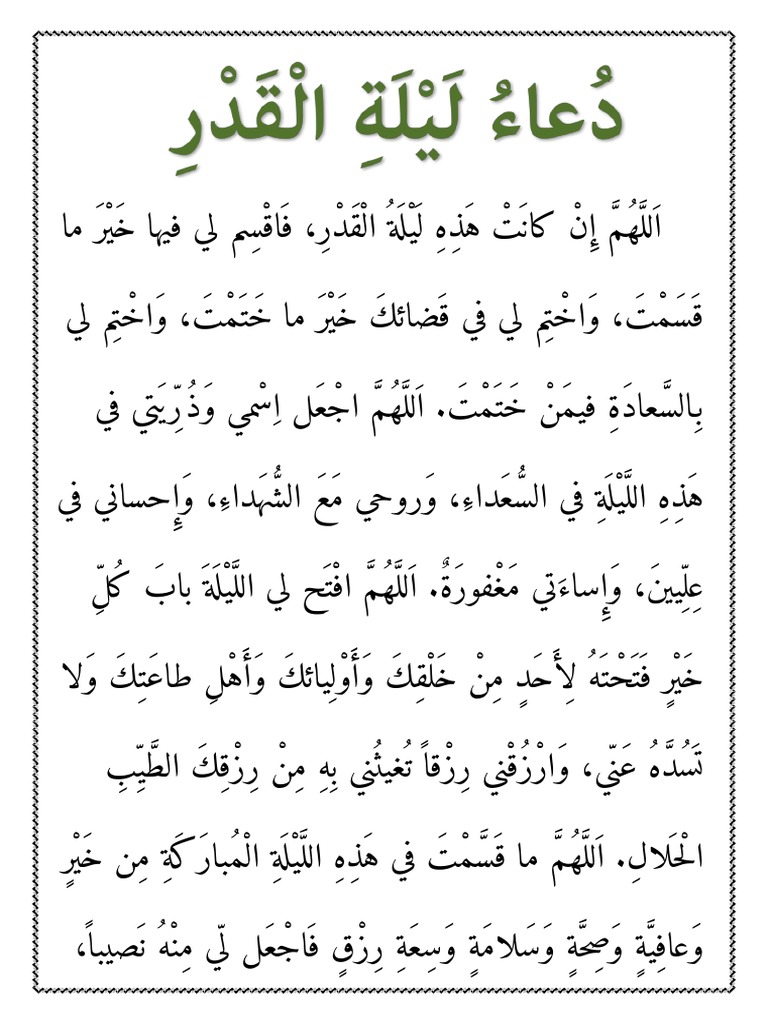 دُعاءُ لَيْلَةِ الْقَدْرِ
اَللَّهُمَّ إِنْ كانَتْ هَذِهِ لَيْلَةُ الْقَدْرِ، فَاقْسِم لي فيها خَيْرَ ما
قَسَمْتَ، وَاخْتِم لي في قَضائكَ خَيْرَ ما خَتَمْتَ، وَاخْتِم لي
بِالسَّعادَةِ فيمَنْ خَتَمْتَ. اَللَّهُمَّ اجْعَل اِسْمي وَذُرِّيَتي في
هَذِهِ اللَّيْلَةِ في السُّعَداءِ، وَروحي مَعَ الشُّهَداءِ، وَإِحساني في
عِلِّيينَ، وَإِساءَتي مَغْفورَةٌ. اَللَّهُمَّ افْتَح لي اللَّيْلَةَ بابَ كُلِّ
خَيْرٍ فَتَحْتَهُ لِأَحَدٍ مِنْ خَلْقِكَ وَأَوْلِيائكَ وَأَهْلِ طاعَتِكَ وَلا
تَسُدَّهُ عَنّي، وَارْزُقْني رِزْقاً تُغيثُني بِهِ مِنْ رِزْقِكَ الطَّيِّبِ
الْحَلالِ. اَللَّهُمَّ ما قَسَّمْتَ في هَذِهِ اللَّيْلَةِ الْمُبارَكَةِ مِن خَيْرٍ
وَعافِيَّةٍ وَصِحَّةٍ وَسَلامَةٍ وَسِعَةِ رِزْقٍ فَاجْعَل لّي مِنْهُ نَصيباً،